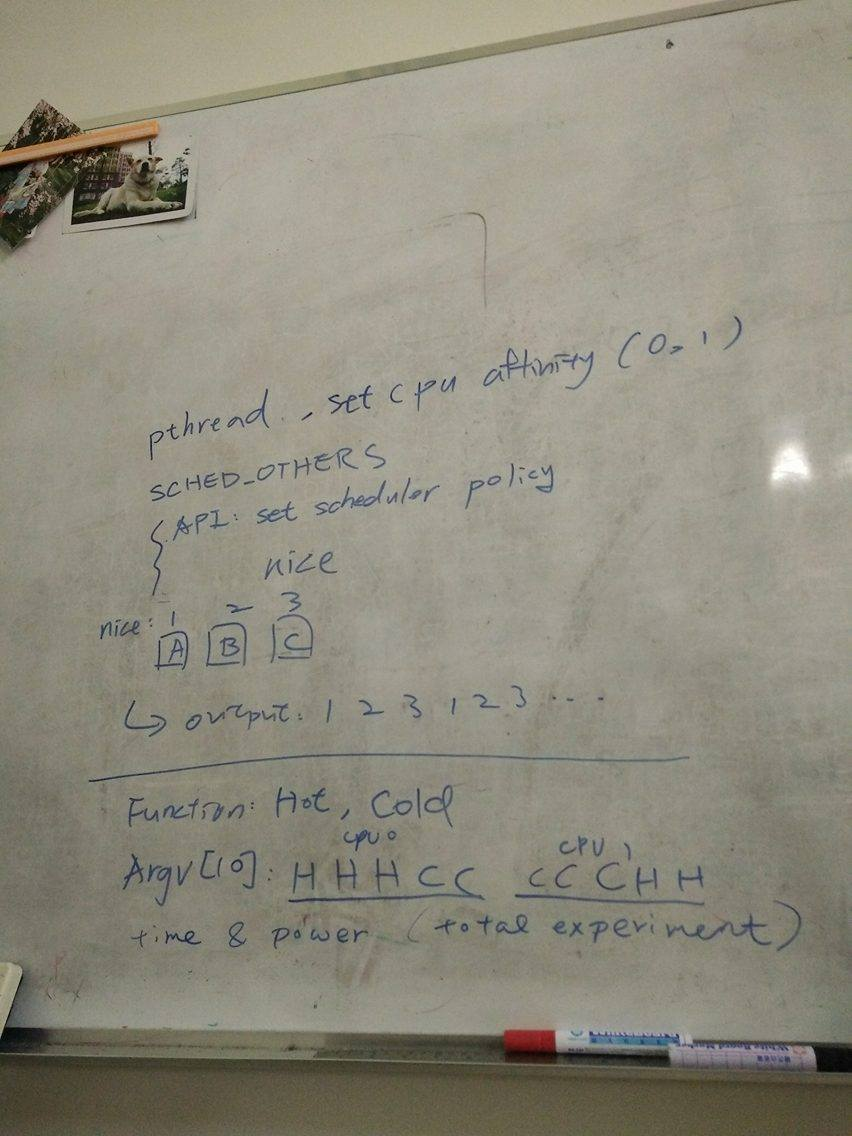 pthread , set cpu affinity (0, 1)
SCHED_OTHERS
API: set scheduler policy
nice
nice: 1 2 3
A B C
↳ output: 1 2 3 1 2 3 ...
Function: Hot, Cold
cpu 0 CPU 1
Argv[10]: H H H C C C C C H H
time & power (total experiment)
White Board Marker